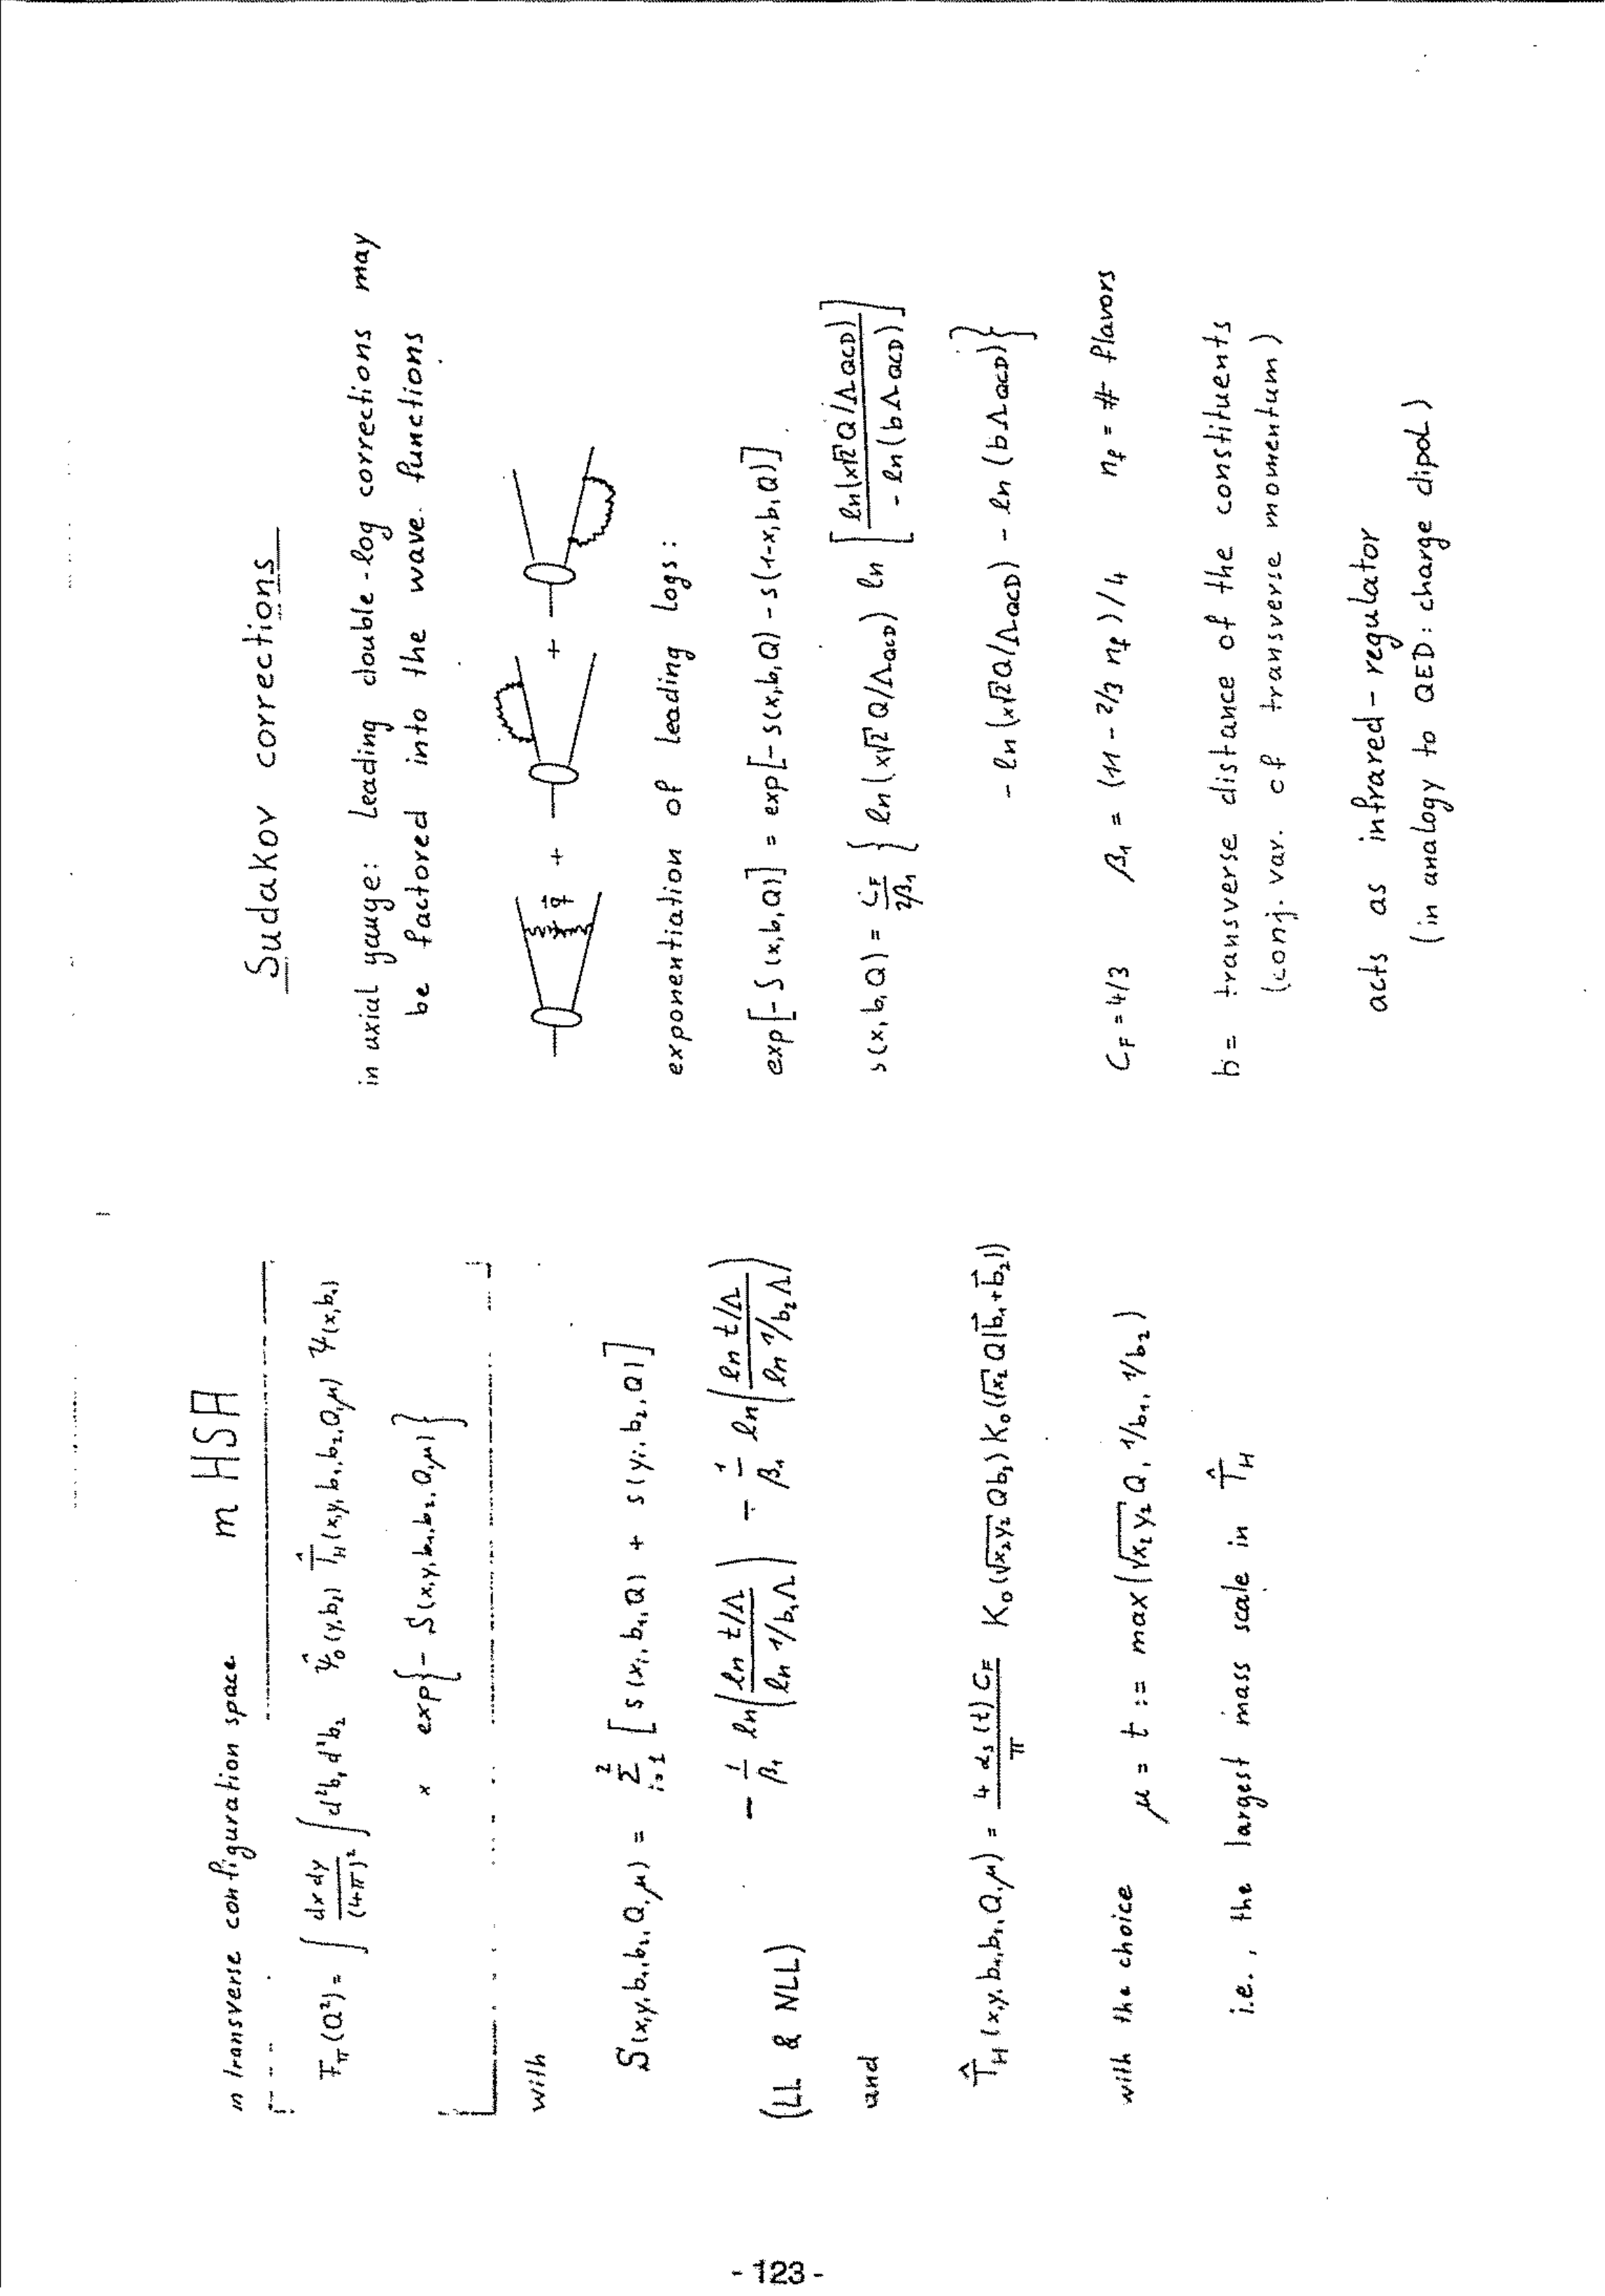 in transverse configuration space m HSA
F_π(Q²) = ∫ dx dy/(4π)² ∫ d²b₁ d²b₂ ψ̂₀(y,b₂) T̂_H(x,y,b₁,b₂,Q,μ) ψ(x,b₁)
× exp{- S(x,y,b₁,b₂,Q,μ)}
with
S(x,y,b₁,b₂,Q,μ) = Σ_{i=1}^{2} [s(x_i,b₁,Q) + s(y_i,b₂,Q)]
- 1/β₁ ln(ln t/Λ / ln 1/b₁Λ) - 1/β₁ ln(ln t/Λ / ln 1/b₂Λ)
(LL & NLL)
and
T̂_H(x,y,b₁,b₂,Q,μ) = 4 α_s(t) C_F/π K₀(√x₂y₂ Q b₂) K₀(√x₂ Q|b⃗₁+b⃗₂|)
with the choice μ = t := max(√x₂y₂ Q, 1/b₁, 1/b₂)
i.e., the largest mass scale in T̂_H
Sudakov corrections
in axial gauge: Leading double-log corrections may
be factored into the wave functions
+ +
exponentiation of leading logs:
exp[-S(x,b,Q)] = exp[-s(x,b,Q) - s(1-x,b,Q)]
s(x,b,Q) = C_F/2β₁ { ln(x√2 Q/Λ_QCD) ln [ln(x√2 Q/Λ_QCD) / - ln(bΛ_QCD)]
- ln(x√2 Q/Λ_QCD) - ln(bΛ_QCD)}
C_F = 4/3 β₁ = (11 - 2/3 n_f)/4 n_f = # flavors
b = transverse distance of the constituents
(conj. var. of transverse momentum)
acts as infrared-regulator
(in analogy to QED: charge dipol)
- 123 -